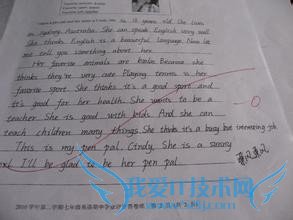 is 13 years old She lives
in Sydney, Australia. She can speak English very well
She thinks English is a beautiful language. Now let
me tell you something about her
Her favorite animals are koala. Because she
thinks they're very cute Playing tennis is her
favorite sport She thinks it's a good sport and
it's good for her health. She wants to be a
teacher. She is good with kids. And she can
teach children many things. She thinks it's a busy but interesting job
This is my pen pal. Cindy. She is a sunny
girl. I'll be glad to be her pen pal
我爱IT技术网